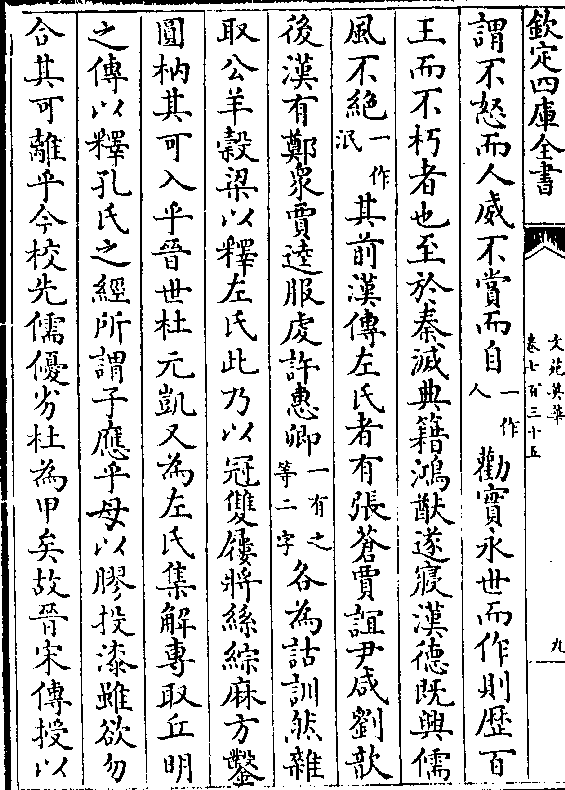 欽定四庫全書
文苑英華
卷七百三十五
九
謂不怒而人威不賞而自一作人勸實永世而作則歴百
王而不朽者也至於秦滅典籍鴻猷遂寢漢德既興儒
風不絶一作泯其前漢傳左氏者有張蒼賈誼尹咸劉歆
後漢有鄭衆賈逵服虔許惠卿一有之等二字各為詁訓然雜
取公羊穀梁以釋左氏此乃以冠雙屨將絲綜麻方鑿
圓枘其可入乎晉世杜元凱又為左氏集解專取丘明
之傳以釋孔氏之經所謂子應乎母以膠投漆雖欲勿
合其可離乎今校先儒優劣杜為甲矣故晉宋傳授以